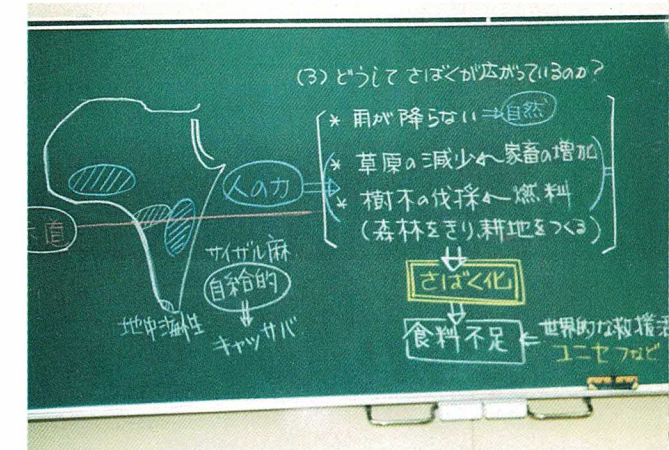 (3)どうしてさばくが広がっているのか?
* 雨が降らない⇒自然
* 草原の減少←家畜の増加
* 樹木の伐採←燃料
(森林をきり、耕地をつくる)
人の力⇒
さばく化
食料不足
⇐世界的な救援活
ユニセフなど
道
サイザル麻
自給的
キャッサバ
地中海性